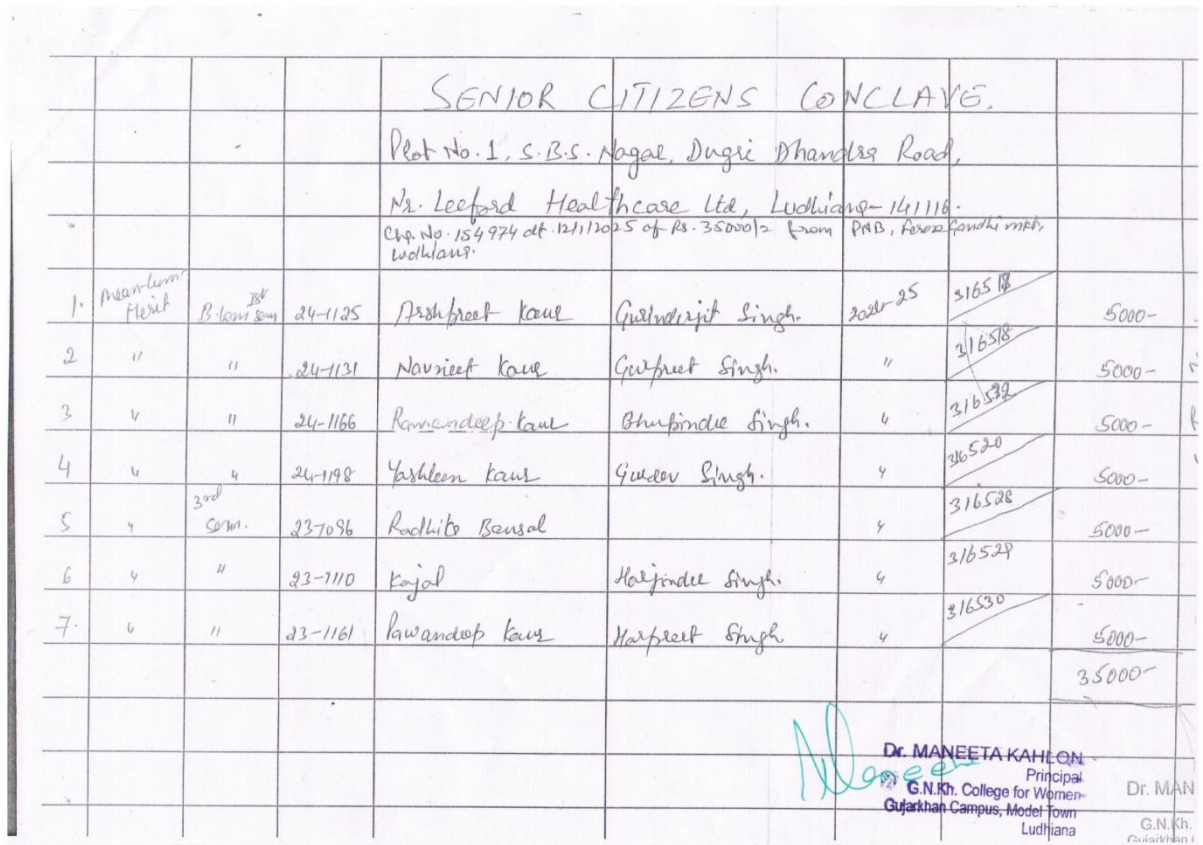 SENIOR CITIZENS CONCLAVE.
Plot No. 1, S.B.S. Nagar, Dugri Dhandra Road,
Nr. Leeford Healthcare Ltd, Ludhiana-141116.
Chq. No. 154974 dt. 12/1/2025 of Rs. 35000/= from PNB, Feroze Gandhi mkt,
Ludhiana.
1. Mean-cum-Merit B.Com Ist Sem 24-1125 Arshpreet Kaur Gurinderjit Singh. 2024-25 316518 5000-
2 " " 24-1131 Navneet Kaur Gurpreet Singh. " 316518 5000-
3 " " 24-1166 Ramandeep Kaur Bhupinder Singh. " 5000-
4 " " 24-1198 Yashleen Kaur Gurdev Singh. " 316520 5000-
5 " 3rd Sem. Radhika Bansal " 316528 5000-
6 " " 23-1110 Kajal Harjinder Singh. " 316529 5000-
7. " " 23-1161 Pawandeep Kaur Harpreet Singh " 316530 5000-
35000-
Dr. MANEETA KAHLON
Principal
G.N.Kh. College for Women
Gujarkhan Campus, Model Town
Ludhiana
Dr. MAN
G.N.Kh.
Gujarkhan